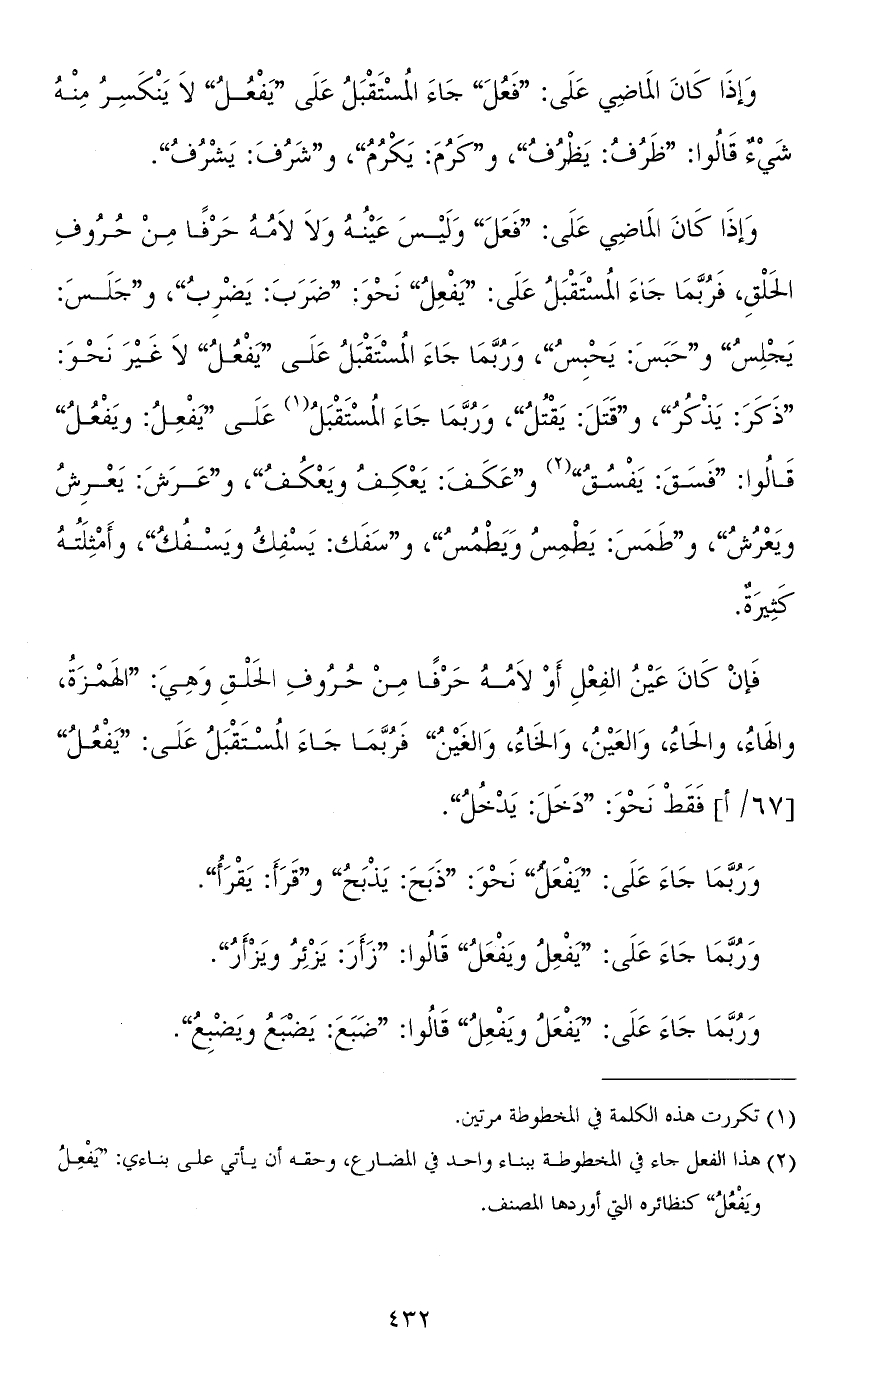 وَإِذَا كَانَ المَاضِي عَلَى: ”فَعُلَ“ جَاءَ المُسْتَقْبَلُ عَلَى ”يَفْعُـلُ“ لاَ يَنْكَسِـرُ مِنْـهُ
شَيْءٌ قَالُوا: ”ظَرُفَ: يَظْرُفُ“، و”كَرُمَ: يَكْرُمُ“، و”شَرُفَ: يَشْرُفُ“.
وَإِذَا كَانَ المَاضِي عَلَى: ”فَعَلَ“ وَلَيْـسَ عَيْنُـهُ وَلاَ لاَمُـهُ حَرْفًـا مِـنْ حُـرُوفِ
الحَلْقِ، فَرُبَّمَا جَاءَ المُسْتَقْبَلُ عَلَى: ”يَفْعِلُ“ نَحْوَ: ”ضَرَبَ: يَضْرِبُ“، و”جَلَـسَ:
يَجْلِسُ“ و”حَبَسَ: يَحْبِسُ“، وَرُبَّمَا جَاءَ المُسْتَقْبَلُ عَلَـى ”يَفْعُـلُ“ لاَ غَيْرَ نَحْـوَ:
”ذَكَرَ: يَذْكُرُ“، و”قَتَلَ: يَقْتُلُ“، وَرُبَّمَا جَاءَ المُسْتَقْبَلُ(١) عَلَـى ”يَفْعِـلُ: ويَفْعُـلُ“
قَـالُوا: ”فَسَـقَ: يَفْسُـقُ“(٢) و”عَكَـفَ: يَعْكِـفُ ويَعْكُـفُ“، و”عَـرَشَ: يَعْـرِشُ
ويَعْرُشُ“، و”طَمَسَ: يَطْمِسُ وَيَطْمُسُ“، و”سَفَكَ: يَسْفِكُ ويَسْـفُكُ“، وأَمْثِلَتُـهُ
كَثِيرَةٌ.
فَإِنْ كَانَ عَيْنُ الفِعْلِ أَوْ لاَمُـهُ حَرْفًـا مِـنْ حُـرُوفِ الحَلْـقِ وَهِيَ: ”الهَمْـزَةُ،
والهَاءُ، والحَاءُ، وَالعَيْنُ، وَالخَاءُ، وَالغَيْنُ“ فَرُبَّمَـا جَـاءَ المُسْـتَقْبَلُ عَلَـى: ”يَفْعُـلُ“
[٦٧/ أ] فَقَطْ نَحْوَ: ”دَخَلَ: يَدْخُلُ“.
وَرُبَّمَا جَاءَ عَلَى: ”يَفْعَلُ“ نَحْوَ: ”ذَبَحَ: يَذْبَحُ“ و”قَرَأَ: يَقْرَأُ“.
وَرُبَّمَا جَاءَ عَلَى: ”يَفْعِلُ ويَفْعَلُ“ قَالُوا: ”زَأَرَ: يَزْئِرُ ويَزْأَرُ“.
وَرُبَّمَا جَاءَ عَلَى: ”يَفْعَلُ ويَفْعِلُ“ قَالُوا: ”ضَبَعَ: يَضْبَعُ ويَضْبِعُ“.
(١) تكررت هذه الكلمة في المخطوطة مرتين.
(٢) هذا الفعل جاء في المخطوطـة ببنـاء واحـد في المضـارع، وحقـه أن يـأتي علـى بنـاءي: ”يَفْعِـلُ
ويَفْعُلُ“ كنظائره التي أوردها المصنف.
٤٣٢